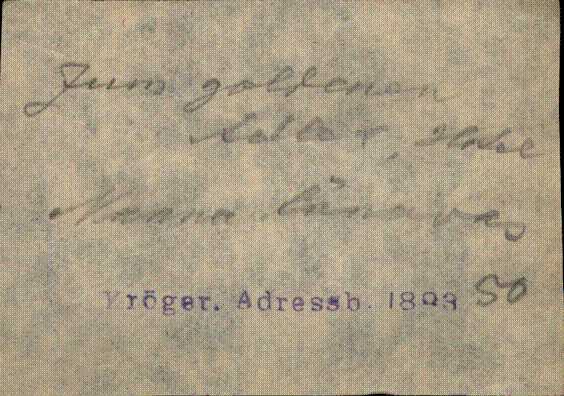 Zum goldenen
Adler, Hotel
Narva tänavas
Kröger. Adressb. 1893 50